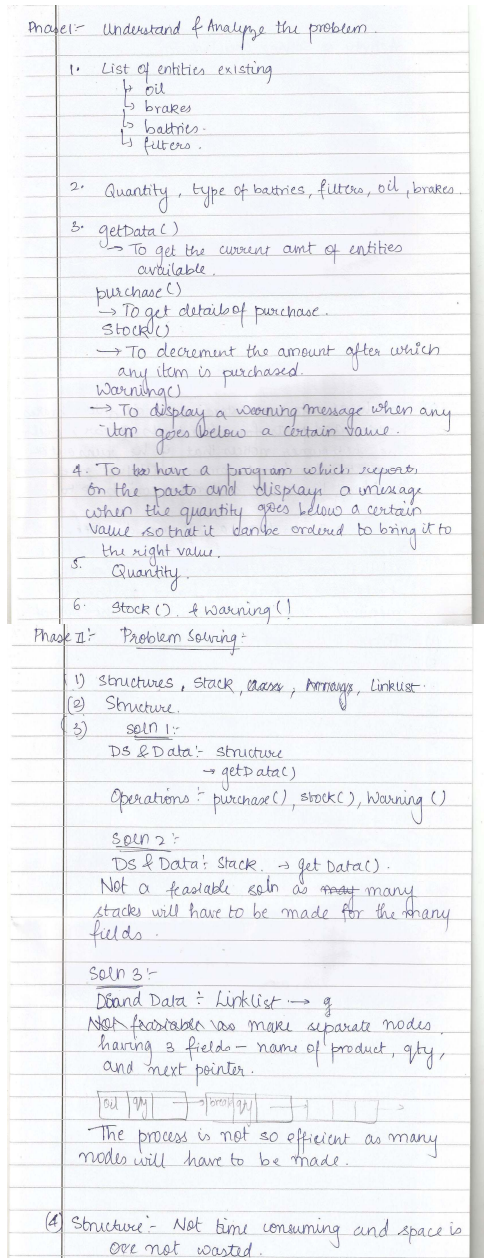 Phase I:- Understand & Analyze the problem.
1. List of entities existing
↳ oil
↳ brakes
↳ battries.
↳ filters.
2. Quantity, type of battries, filters, oil, brakes.
3. getData()
→ To get the current amt of entities
available.
purchase()
→ To get details of purchase.
Stock()
→ To decrement the amount after which
any item is purchased.
Warning()
→ To display a warning message when any
item goes below a certain value.
4. To have a program which reports
on the parts and displays a message
when the quantity goes below a certain
value so that it can be ordered to bring it to
the right value.
5. Quantity.
6. Stock() & Warning()
Phase II:- Problem Solving:-
(1) Structures, Stack, class, Arrays, Linklist.
(2) Structure.
(3) Soln 1:-
DS & Data:- structure
→ getData()
Operations:- purchase(), stock(), Warning()
Soln 2:-
DS & Data: Stack. → get Data().
Not a feasiable soln as many
stacks will have to be made for the many
fields.
Soln 3:-
DS and Data:- Linklist → g
Not feasiable as make separate nodes
having 3 fields - name of product, qty,
and next pointer.
oil qty → qty →
The process is not so efficient as many
nodes will have to be made.
(4) Structure:- Not time consuming and space is
not wasted.